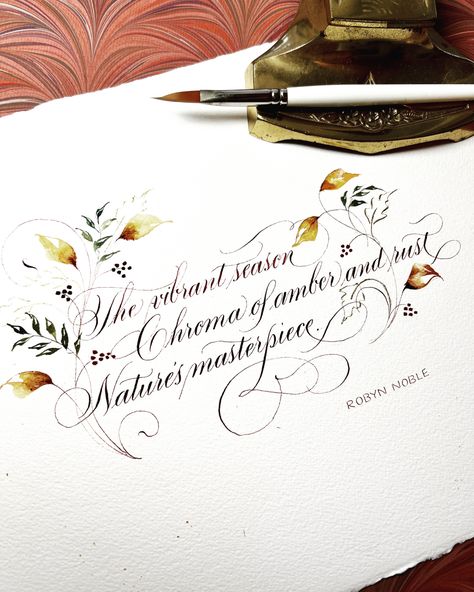 The vibrant season
Chroma of amber and rust
Nature's masterpiece.
ROBYN NOBLE